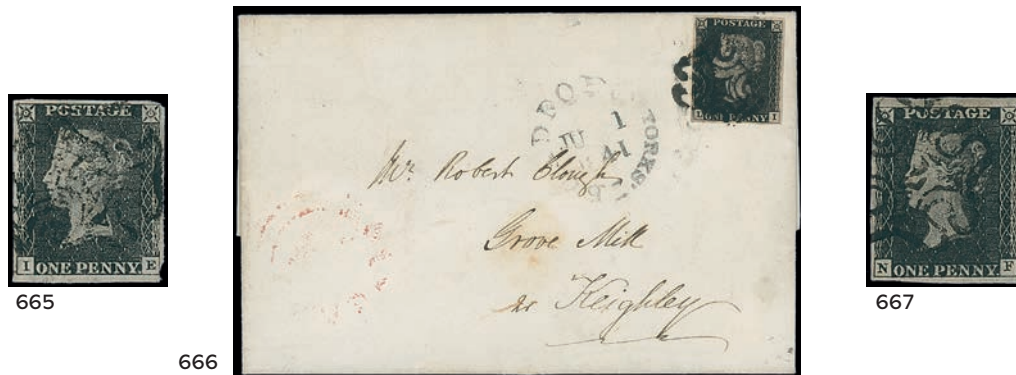 POSTAGE
I ONE PENNY E
665
POSTAGE
L ONE PENNY I
JU 1
41
YORKS.
Mr. Robert Clough
Grove Mill
nr Keighley
666
POSTAGE
N ONE PENNY F
667